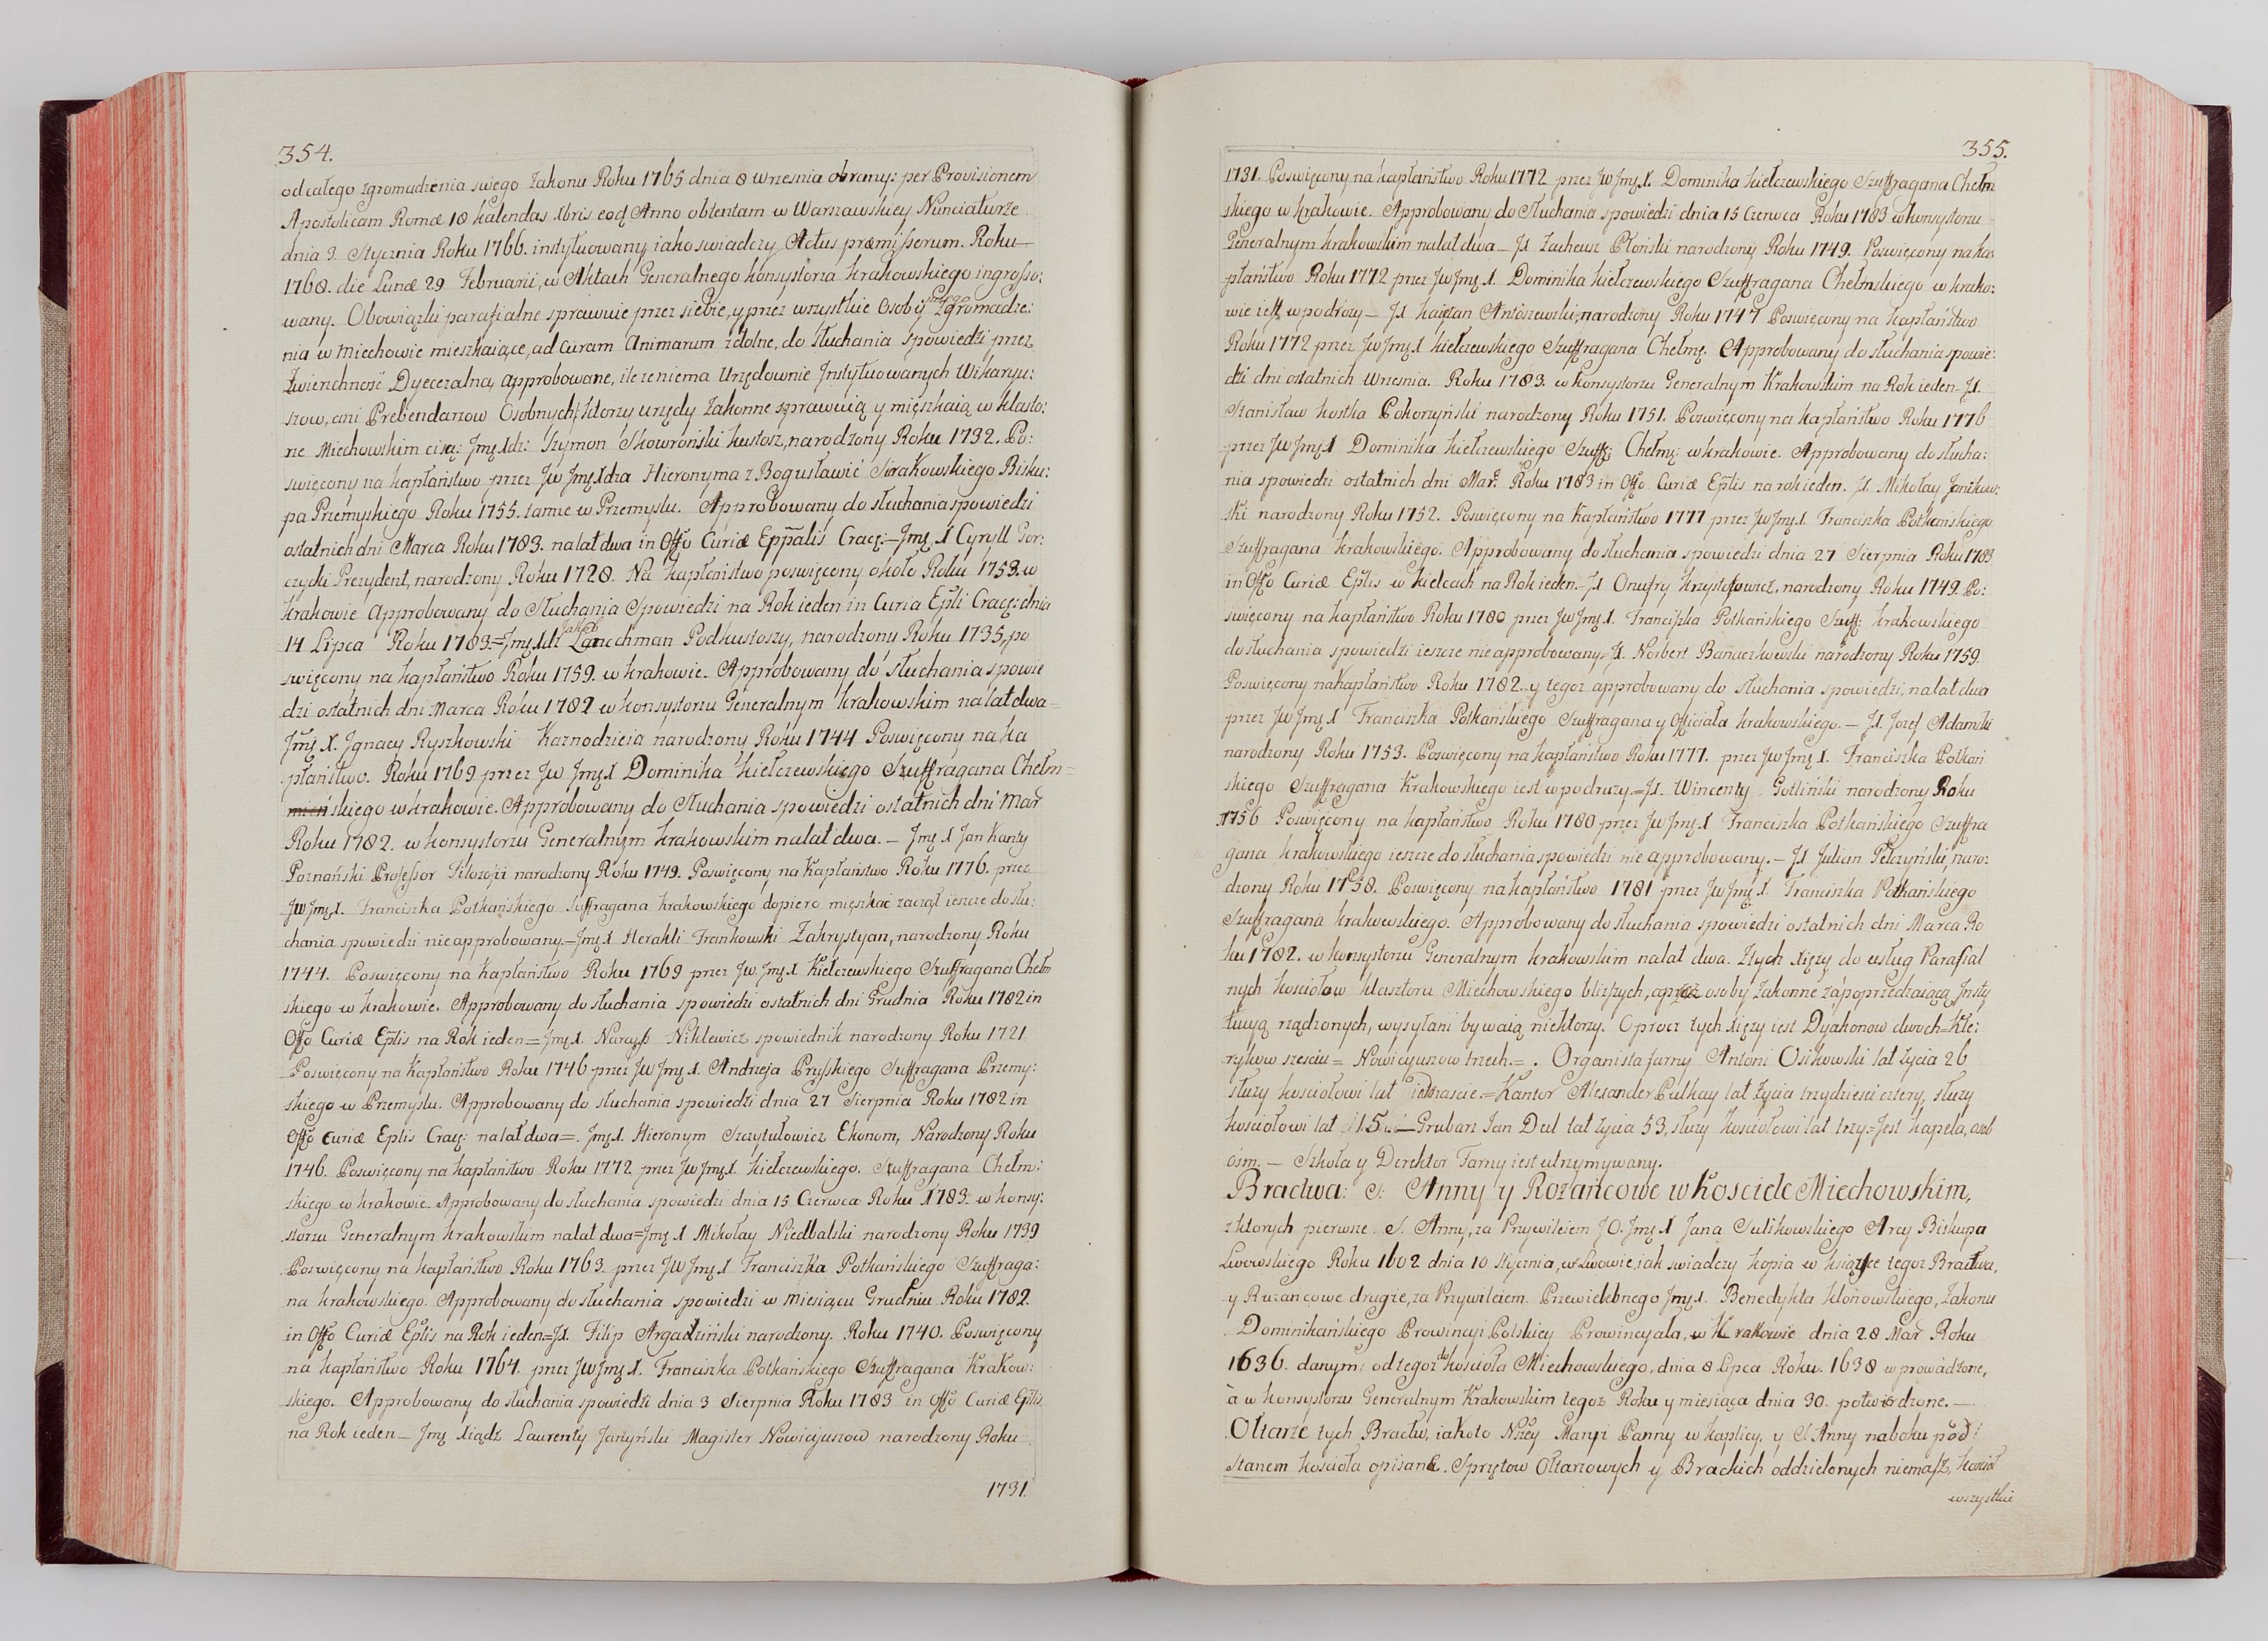 354.
od całego zgromadzenia swego Zakonu Roku 1765 dnia 8 wrzesnia obrany: per Provisionem
Apostolicam Romæ 18 Kalendas Xbris eod Anno obtentam w Warszawskiey Nunciaturze
dnia 3. Stycznia Roku 1766. instytuowany, iako swiadczy Actus præmissorum. Roku
1768. die Lunæ 29 Februarii, w Aktach Generalnego Konsystorza Krakowskiego ingrosso:
wany. Obowiązki parafialne sprawuie przez siebie, y przez wszystkie Osoby Zgromadze:
nia w Miechowie mieszkaiące, ad Curam Animarum zdolne, do słuchania spowiedzi przez
Zwierzchnosć Dyecezalną approbowane, ile ze niema Urzędownie Instytuowanych Wikaryu:
szow, ani Prebendarzow Osobnych, ktorzy urzędy zakonne sprawuią y mięszkaią w klaszto:
rze Miechowskim ci są: Jmę Xdz: Szymon Skowroński kustosz, narodzony Roku 1732. Po:
swięcony na kapłaństwo przez JW Jmę Xdza Hieronyma z Bogusławic Sierakowskiego Bisku:
pa Przemyskiego Roku 1755. tamze w Przemyslu. Approbowany do słuchania spowiedzi
ostatnich dni Marca Roku 1783. na lat dwa in Offo Curiæ Eppalis Cracę:— Jmę X Cyryll Gor:
czycki Prezydent, narodzony Roku 1728. Na kapłaństwo poswięcony około Roku 1753. w
Krakowie Approbowany do Słuchania Spowiedzi na Rok ieden in Curia Epli Cracę: dnia
14 Lipca Roku 1783.= Jmę Xdz Jakob Lanschman Podkustoszy, narodzony Roku 1735, po
swięcony na kapłaństwo Roku 1759. w Krakowie. Approbowany do słuchania spowie
dzi ostatnich dni Marca Roku 1782 w Konsystorzu Generalnym Krakowskim na lat dwa=
Jmę X. Jgnacy Ryszkowski Kaznodzieia narodzony Roku 1744 Poswięcony na ka
płaństwo. Roku 1769 przez JW Jmę X Dominika Kiełczewskiego Szuffragana Chełm=
skiego w Krakowie. Approbowany do Słuchania spowiedzi ostatnich dni Mar
Roku 1782. w Konsystorzu Generalnym Krakowskim na lat dwa.— Jmę X Jan Kanty
Poznański Professor Filozofii narodzony Roku 1749. Poswięcony na Kapłaństwo Roku 1776. przez
JW Jmę X. Franciszka Potkańskiego Suffragana Krakowskiego dopiero mięszkać zaczął ieszcze do słu:
chania spowiedzi nie approbowany.— Jmę X Herakli Frankowski Zakrystyan, narodzony Roku
1744. Poswięcony na Kapłaństwo Roku 1769 przez JW Jmę X Kiełczewskiego Szuffragana Chełm
skiego w Krakowie. Approbowany do słuchania spowiedzi ostatnich dni Grudnia Roku 1782 in
Offo Curiæ Eplis na Rok ieden= Jmę X. Narcyss Niklewicz spowiednik narodzony Roku 1721
Poswięcony na Kapłaństwo Roku 1746 przez JW Jmę X. Andrzeja Pruskiego Suffragana Przemy:
skiego w Przemyslu. Approbowany do słuchania spowiedzi dnia 27 Sierpnia Roku 1782 in
Offo Curiæ Eplis Cracę: na lat dwa=. Jmę X. Hieronym Szczytułowicz Ekonom, Narodzony Roku
1746. Poswięcony na kapłaństwo Roku 1772 przez JW Jmę X. Kiełczewskiego. Szuffragana Chełm:
skiego w Krakowie. Approbowany do słuchania spowiedzi dnia 15 Czerwca Roku 1783. w Konsy:
storzu Generalnym Krakowskim na lat dwa= Jmę X Mikołay Niedbalski narodzony Roku 1739
Poswięcony na kapłaństwo Roku 1763. przez JW Jmę X Franciszka Potkańskiego Szuffraga:
na Krakowskiego. Approbowany do słuchania spowiedzi w Miesiącu Grudniu Roku 1782.
in Offo Curiæ Eplis na Rok ieden.= JX. Filip Argadziński narodzony. Roku 1740. Poswięcony
na kapłaństwo Roku 1764. przez JW Jmę X. Franciszka Potkańskiego Szuffragana Krakow:
skiego. Approbowany do słuchania spowiedzi dnia 3 Sierpnia Roku 1783 in Offo Curiæ Eplis
na Rok ieden— Jmę Xiądz Laurenty Jarzyński Magister Nowicyuszow narodzony Roku
1731.
355.
1731. Poswięcony na kapłaństwo Roku 1772 przez JW Jmę X. Dominika Kiełczewskiego Szuffragana Chełm
skiego w Krakowie. Approbowany do Słuchania spowiedzi dnia 15 Czerwca Roku 1783 w Konsystorzu
Generalnym Krakowskim na lat dwa— JX Zacheusz Płoński narodzony Roku 1749. Poswięcony na ka
płaństwo Roku 1772 przez JW Jmę X. Dominika Kiełczewskiego Szuffragana Chełmskiego w Krako:
wie iest w podrozy— JX Kaietan Antoszewski, narodzony Roku 1747 Poswięcony na kapłaństwo
Roku 1772 przez JW Jmę X Kiełczewskiego Szuffragana Chełmę. Approbowany do słuchania spowie:
dzi dni ostatnich Wrzesnia. Roku 1783. w Konsystorzu Generalnym Krakowskim na Rok ieden— JX.
Stanisław Kostka Pokorzyński narodzony Roku 1751. Poswięcony na kapłaństwo Roku 1776
przez JW Jmę X Dominika Kiełczewskiego Szuff: Chełmę: w Krakowie. Approbowany do słucha:
nia spowiedzi ostatnich dni Mar. Roku 1783 in Offo Curiæ Eplis na rok ieden. JX. Mikołay Janikow:
ski narodzony Roku 1752. Poswięcony na Kapłaństwo 1777 przez JW Jmę X. Franciszka Potkańskiego
Szuffragana Krakowskiego. Approbowany do słuchania spowiedzi dnia 27 Sierpnia Roku 1783
in Offo Curiæ Eplis w Kielcach na Rok ieden.— JX Onufry Krzysztofowicz, narodzony Roku 1749. Po:
swięcony na kapłaństwo Roku 1780 przez JW Jmę X. Franciszka Potkańskiego Szuff: Krakowskiego
do słuchania spowiedzi ieszcze nie approbowany= JX. Norbert Banaczkowski narodzony Roku 1759.
Poswięcony na Kapłaństwo Roku 1782. y tegoz approbowany do słuchania spowiedzi, na lat dwa
przez JW Jmę X Franciszka Potkańskiego Szuffragana y Officiała Krakowskiego.— JX. Jozef Adamski
narodzony Roku 1753. Poswięcony na kapłaństwo Roku 1777. przez JW Jmę X. Franciszka Potkań
skiego Szuffragana Krakowskiego iest w podruzy.= JX. Wincenty Gotliński narodzony Roku
1756 Poswięcony na kapłaństwo Roku 1780 przez JW Jmę X Franciszka Potkańskiego Szuffra
gana Krakowskiego ieszcze do słuchania spowiedzi nie approbowany.— JX Julian Pełczyński, naro:
dzony Roku 1758. Poswięcony na kapłaństwo 1781 przez JW Jmę X. Franciszka Potkańskiego
Szuffragana Krakowskiego. Approbowany do słuchania spowiedzi ostatnich dni Marca Ro
ku 1782. w Konsystorzu Generalnym Krakowskim na lat dwa. Z tych Xięzy do usług Parafial
nych Kosciołow Klasztoru Miechowskiego blizszych, a przez osoby Zakonne za poprzedzaiącą Insty
tucyą rządzonych, wysyłani bywaią niektorzy. Oprocz tych Xięzy iest Dyakonow dwoch= Kle:
rykow szesciu= Nowicyuszow trzech.=. Organista farny Antoni Osikowski lat zycia 26
słuzy kosciołowi lat = Kantor Alexander Pulkay lat zycia trzydziesci cztery, słuzy
kosciołowi lat 15.— Grubarz Jan Dul lat zycia 53, słuzy kosciołowi lat trzy.= Jest kapela, osob
osm.— Szkoła y Derektor Farny iest utrzymywany.
Bractwa: S: Anny y Rozańcowe w Kosciele Miechowskim,
z ktorych pierwsze S. Anny, za Przywileiem JO. Jmę X Jana Sulikowskiego Arcy Biskupa
Lwowskiego Roku 1602 dnia 10 Stycznia, w Lwowie, iak swiadczy kopia w książce tegoz Bractwa,
y Ruzancowe drugie, za Przywileiem. Przewielebnego Jmę X. Benedykta Kłonowskiego, Zakonu
Dominikańskiego Prowincyi Polskiey Prowincyała, w Krakowie dnia 28 Mar Roku
1636. danym: od tegoz do koscioła Miechowskiego, dnia 8 Lipca Roku. 1638 wprowadzone,
a w Konsystorzu Generalnym Krakowskim tegoz Roku y miesiąca dnia 30. potwierdzone.—
Ołtarze tych Bractw, iakoto Nszey Maryi Panny w kaplicy, y S Anny na boku pod
Stanem koscioła opisane. Sprzętow Ołtarzowych y Brackich oddzielonych niemasz, koscioł
wszystkie